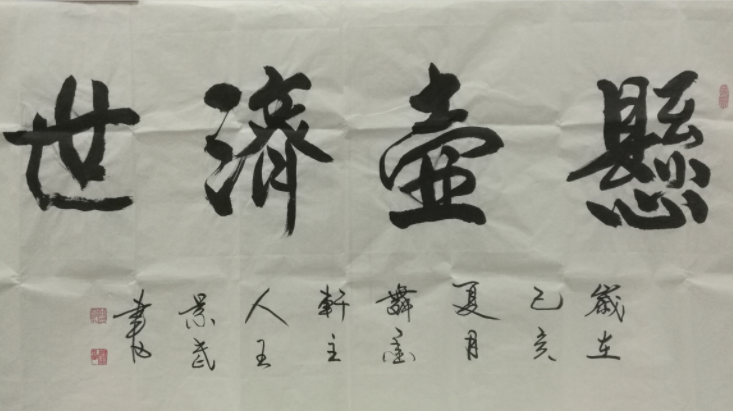 懸壺濟世
歲在
己亥
夏月
舞墨
軒主
人王
景武
書